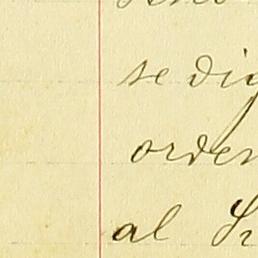 se dig
orden
al Sr